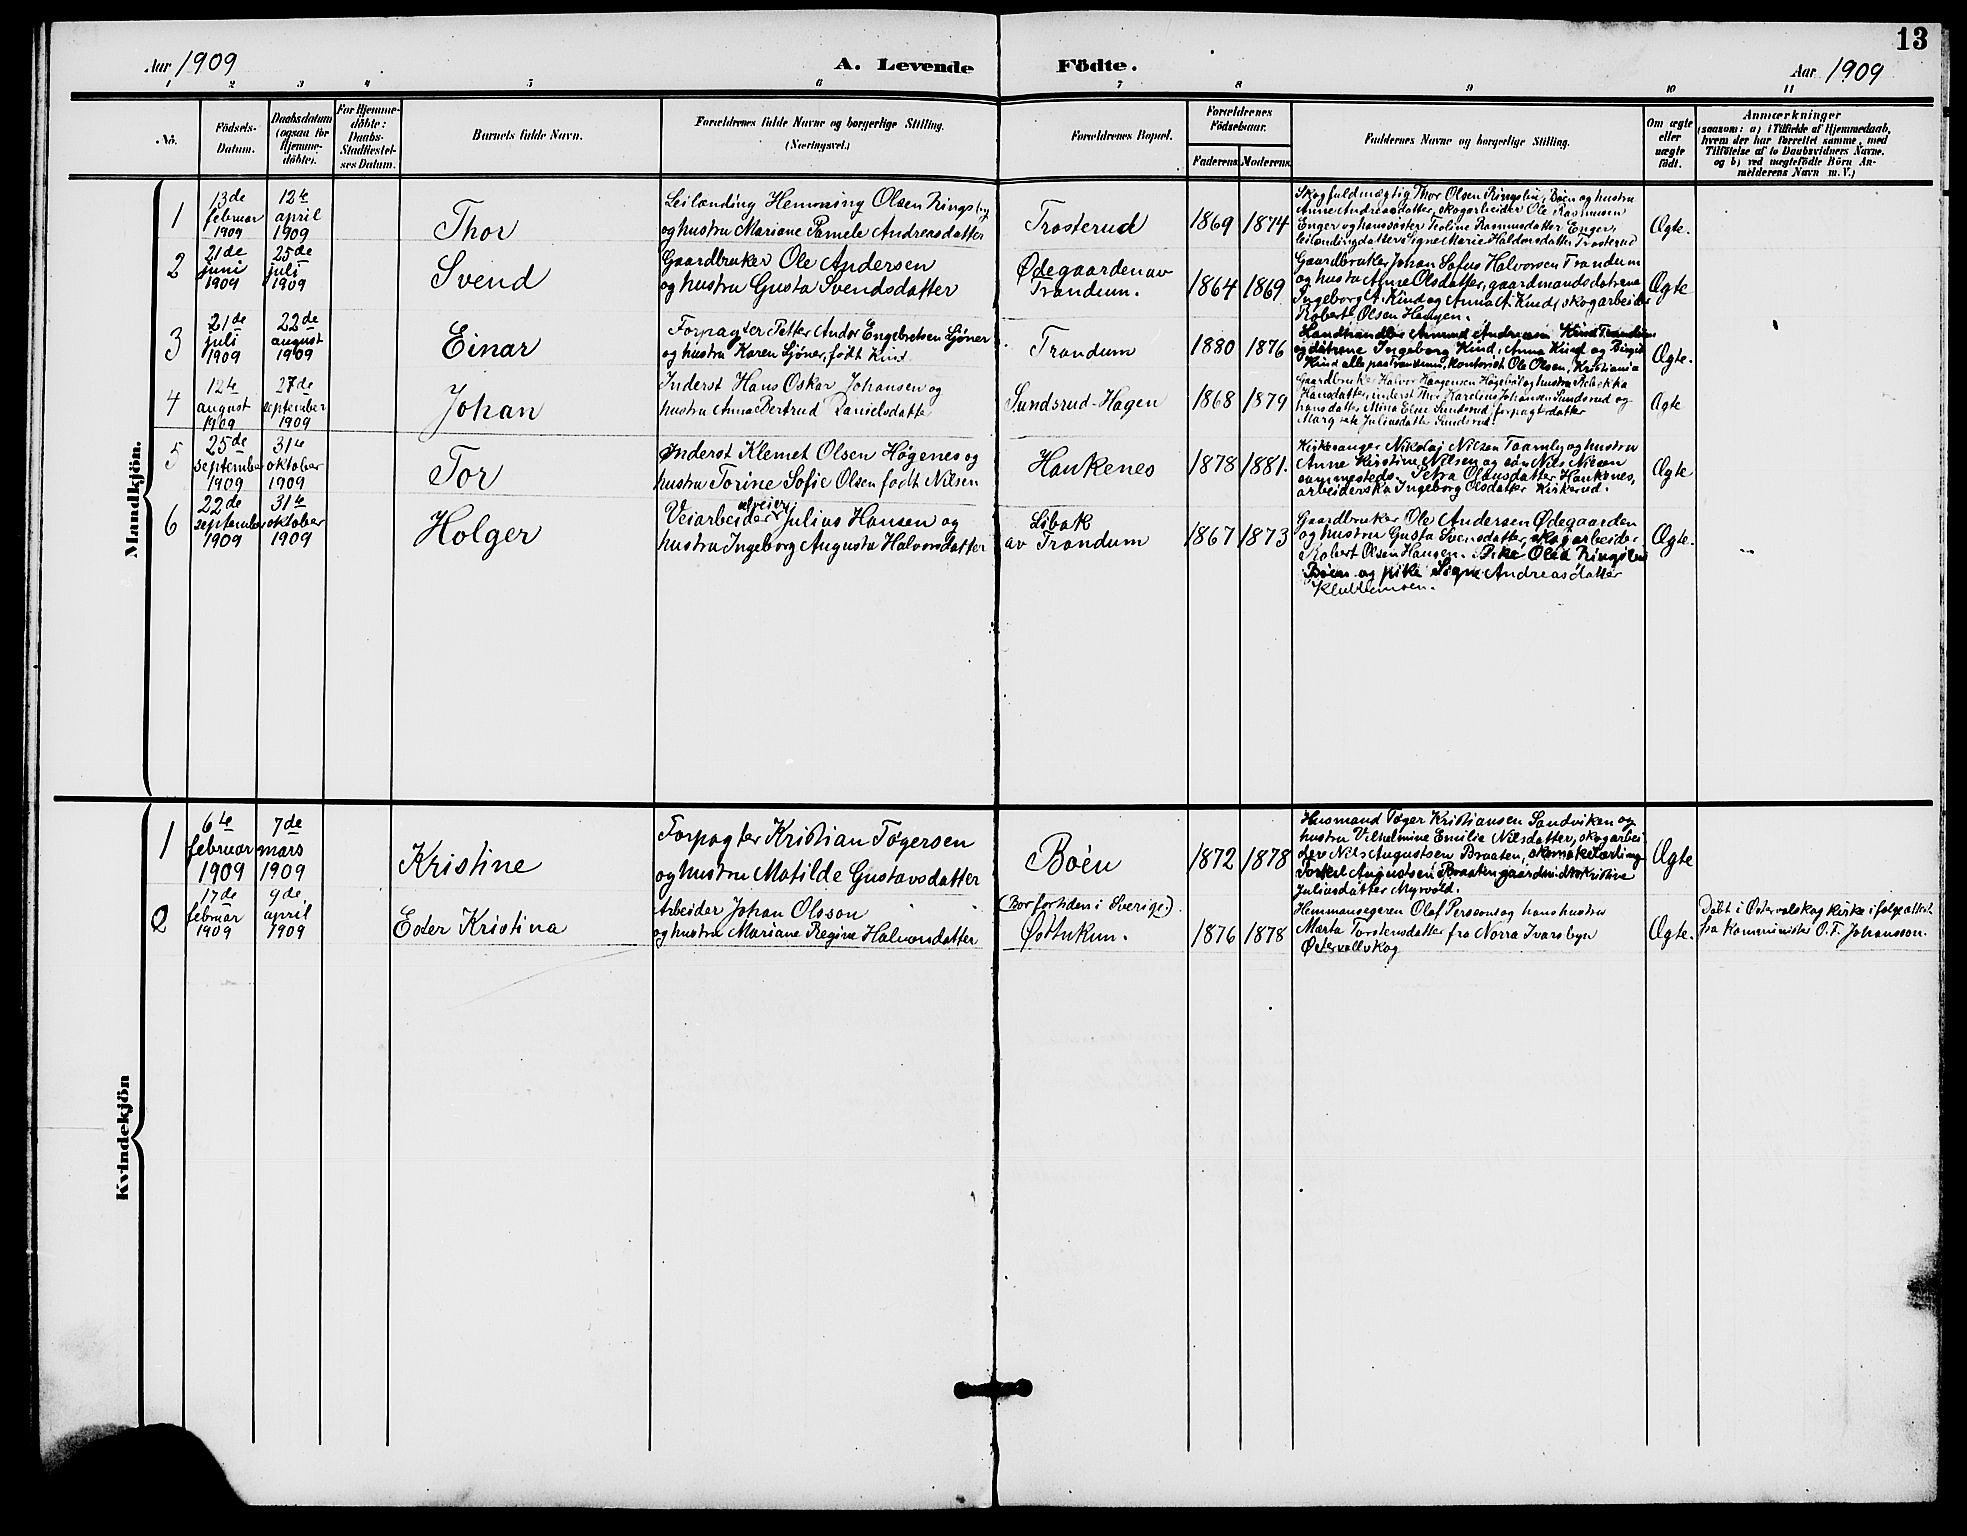 13
Aar 1909
A. Levende Födte.
Aar 1909
1 2 3 4 5 6 7 8 9 10 11
No.
Födsels-
Datum.
Daabsdatum
(ogsaa for
Hjemme-
döbte).
For Hjemme-
döbte:
Daabs-
Stadfæstel-
ses Datum.
Barnets fulde Navn.
Forældrenes fulde Navne og borgerlige Stilling.
(Næringsvei.)
Forældrenes Bopæl.
Forældrenes
Födselsaar.
Faderens. Moderens.
Faddernes Navne og borgerlige Stilling.
Om ægte
eller
uægte
födt.
Anmærkninger
(saasom: a) i Tilfælde af Hjemmedaab,
hvem der har forrettet samme, med
Tilföielse af to Daabsvidners Navne,
og b) ved uægtefödte Börn An-
melderens Navn m. V.)
Mandkjön.
1
13de
februar
1909
12te
april
1909
Thor
Leilænding Hemming Olsen Ringsby
og hustru Mariane Pamele Andreasdatter
Trosterud
1869 1874
Skogfuldmægtig Thor Olsen Ringslin, Böen og hustru
Anne Andreasdatter, skogarbeider Ole Rasmussen
Enger og hans søster Teoline Rasmusdatter Enger,
leilændingdatter Signe Marie Haldorsdatter Trosterud
Ægte.
2
21de
juni
1909
25de
juli
1909
Svend
Gaardbruker Ole Andersen
og hustru Gusta Svendsdatter
Ødegaarden av
Trandum.
1864 1869
Gaardbruker Johan Sofus Halvorsen Trandum
og hustru Anne Olsdatter, gaardmandsdøtrene
Ingeborg A. Kind og Anna A. Kind, skogarbeider
Robert Olsen Haugen.
Ægte
3
21de
juli
1909
22de
august
1909
Einar
Forpagter Petter Andor Engebretsen Sjöner
og hustru Karen Sjöner, født Kind
Trandum
1880 1876
Landhandler Amund Andreasen Kind Trandum
og døtrene Ingeborg Kind, Anna Kind og Birgit
Kind alle paa Trandum, kontorist Ole Olsen, Kristiania
Ægte.
4
12te
august
1909
27de
september
1909
Johan
Inderst Hans Oskar Johansen og
hustru Anna Bertrud Danielsdatte
Sundsrud-Hagen
1868 1879
Gaardbruker Halvor Haagensen Høgebøl og hustru Rebekka
Hansdatter, inderst Thor Karelius Johansen Sundsrud og
hans datter Mina Elise Sundsrud, forpagterdatter
Margrete Juliusdatter Sundsrud.
Ægte
5
25de
september
1909
31te
oktober
1909
Tor
Inderst Klemet Olsen Høgenes og
hustru Torine Sofie Olsen født Nilsen
Haukenes
1878 1881.
Kirkesanger Nikolaj Nilsen Taarnby og hustru
Anne Kristine Nilsen og søn Nils Nilsen
sammesteds. Petra Olausdatter Haukenes,
arbeiderska Ingeborg Olsdatter Kirkerud.
Ægte
6
22de
september
1909
31te
oktober
1909
Holger
Veiarbeider Julius Hansen og
hustru Ingeborg Augusta Halvorsdatter
Libak
av Trandum
1867 1873
Gaardbruker Ole Andersen Ødegaarden
og hustru Gusta Svensdatter, skogarbeider
Robert Olsen Haugen. Pike Olea Ringslin
Böen og pike Signe Andreasdatter
Ægte.
Kvindekjön
1
6te
februar
1909
7de
mars
1909
Kristine
Forpagter Kristian Tøgersen
og hustru Matilde Gustavsdatter
Boën
1872 1878
Husmand Tøger Kristiansen Sandviken og
hustru Vilhelmine Emilie Nilsdatter, skogarbei
der Nils Augustsen Braaten, skomakerlærling
Torkel Augustsen Braaten, gaardmdtr Kristine
Juliusdatter Myrvold.
Ægte
2
17de
februar
1909
9de
april
1909
Ester Kristina
Arbeider Johan Olsson
og hustru Mariane Regine Halvorsdatter
(Bor fortiden i Sverige)
1876 1878
Hemmansegeren Olof Persson og hans hustru
Marta Torstensdatter fra Norra Ivarsbyn
Östervallskog
Ægte.
Döbt i Östervalskog kirke ifølge attest
fra Komminister O. F. Johansson.